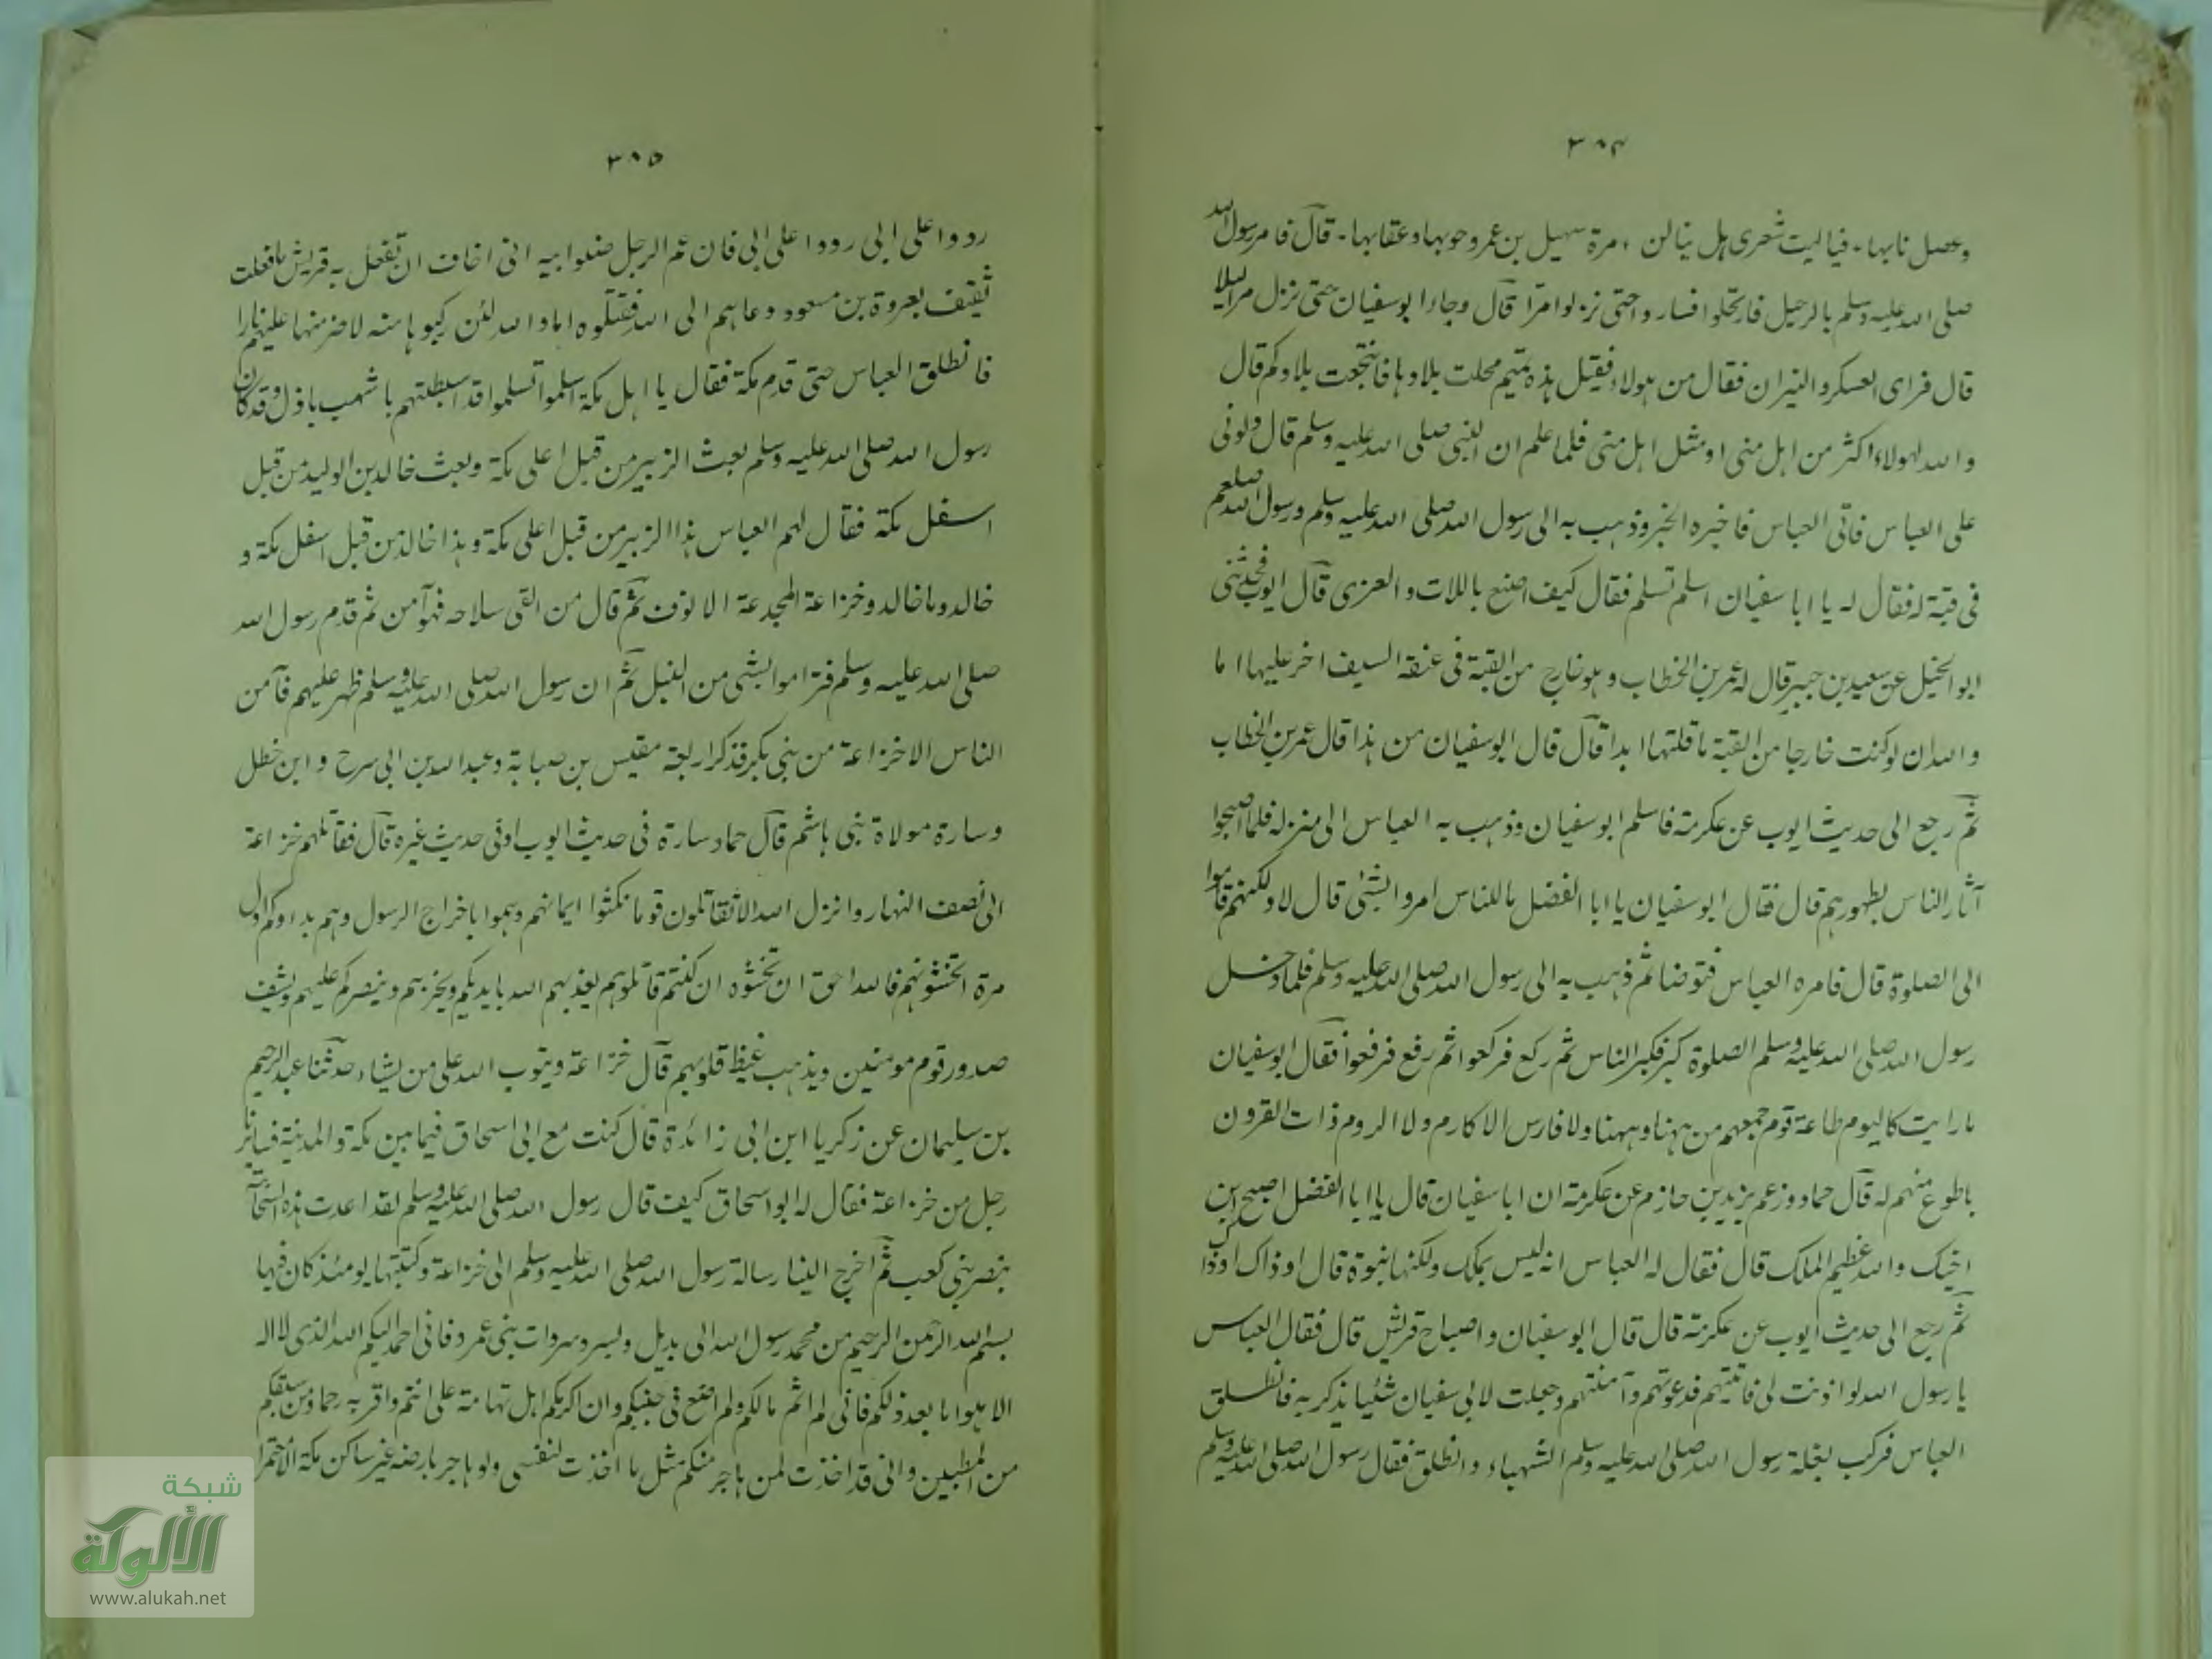 ٣٠٤
وعصل نابها - فياليت شعري هل ينالن ، مرة سهيل بن عمرو حوبها وعقابها - قال فامر رسول الله
صلى الله عليه وسلم بالرحيل فارتحلوا فساروا حتى نزلوا مرا قال وجاء ابو سفيان حتى نزل مرا ليلا
قال فراى العسكر والنيران فقال من هولاء فقيل هذه تميم محلت بلادها فانتجعت بلادكم قال
والله لهولاء اكثر من اهل منى او مثل اهل منى فلما علم ان النبي صلى الله عليه وسلم قال دلوني
على العباس فاتى العباس فاخبره الخبر وذهب به الى رسول الله صلى الله عليه وسلم ورسول الله صلعم
في قبة له فقال له يا ابا سفيان اسلم تسلم فقال كيف اصنع باللات والعزى قال ايوب فحدثني
ابو الخليل عن سعيد بن جبير قال له عمر بن الخطاب وهو خارج من القبة في عنقه السيف اخر عليها اما
والله ان لو كنت خارجا من القبة ما قلتها ابدا قال قال ابو سفيان من هذا قال عمر بن الخطاب
ثم رجع الى حديث ايوب عن عكرمة فاسلم ابو سفيان وذهب به العباس الى منزله فلما اصبحوا
آثار الناس بطهورهم قال فقال ابو سفيان يا ابا الفضل ما للناس امروا بشئ قال لا ولكنهم قاموا
الى الصلوة قال فامره العباس فتوضا ثم ذهب به الى رسول الله صلى الله عليه وسلم فلما دخل
رسول الله صلى الله عليه وسلم الصلوة كبر فكبر الناس ثم ركع فركعوا ثم رفع فرفعوا فقال ابو سفيان
ما رايت كاليوم طاعة قوم جمعهم من ههنا وههنا ولا فارس الاكارم ولا الروم ذات القرون
باطوع منهم له قال حماد وزعم يزيد بن حازم عن عكرمة ان ابا سفيان قال يا ابا الفضل اصبح ابن
اخيك والله عظيم الملك قال فقال له العباس انه ليس بملك ولكنها نبوة قال او ذاك او ذاك
ثم رجع الى حديث ايوب عن عكرمة قال قال ابو سفيان واصباح قريش قال فقال العباس
يا رسول الله لو اذنت لي فاتيتهم فدعوتهم وآمنتهم وجعلت لابي سفيان شئيا يذكر به فانطلق
العباس فركب بغلة رسول الله صلى الله عليه وسلم الشهباء وانطلق فقال رسول الله صلى الله عليه وسلم
٣٠٥
ردوا على ابي ردوا على ابي فان عم الرجل صنوابيه اني اخاف ان تفعل به قريش ما فعلت
ثقيف بعروة بن مسعود دعاهم الى الله فقتلوه اما والله لئن ركبوها منه لاضرمنها عليهم نارا
فانطلق العباس حتى قدم مكة فقال يا اهل مكة اسلموا تسلموا قد استبطنتم باشهب باذل وقد كان
رسول الله صلى الله عليه وسلم بعث الزبير من قبل اعلى مكة وبعث خالد بن الوليد من قبل
اسفل مكة فقال لهم العباس هذا الزبير من قبل اعلى مكة وهذا خالد من قبل اسفل مكة و
خالد وما خالد وخزاعة المجدعة الانوف ثم قال من القى سلاحه فهو آمن ثم قدم رسول الله
صلى الله عليه وسلم فتراموا بشئ من النبل ثم ان رسول الله صلى الله عليه وسلم ظهر عليهم فآمن
الناس الا خزاعة من بني بكر فذكر اربعة مقيس بن صبابة وعبد الله بن ابي سرح وابن خطل
وسارة مولاة بني هاشم قال حماد سارة في حديث ايوب او في حديث غيره قال فقاتلهم خزاعة
الى نصف النهار وانزل الله الا تقاتلون قوما نكثوا ايمانهم وهموا باخراج الرسول وهم بداوكم اول
مرة اتخشونهم فالله احق ان تخشوه ان كنتم قاتلوهم يعذبهم الله بايديكم ويخزهم وينصركم عليهم ويشف
صدور قوم مومنين ويذهب غيظ قلوبهم قال خزاعة ويتوب الله على من يشاء حدثنا عبد الرحيم
بن سليمان عن زكريا ابن ابي زائدة قال كنت مع ابي اسحاق فيما بين مكة والمدينة فسايرنا
رجل من خزاعة فقال له ابو اسحاق كيف قال رسول الله صلى الله عليه وسلم لقد اعدت هذه السحابة
بنصر بني كعب ثم اخرج الينا رسالة رسول الله صلى الله عليه وسلم الى خزاعة وكتبتها يومئذ كان فيها
بسم الله الرحمن الرحيم من محمد رسول الله الى بديل وبسر وسروات بني عمرو فاني احمد اليكم الله الذي لا اله
الا هو اما بعد ذلكم فاني لم اثم مالكم ولم اضع في جنبكم وان اكرمكم اهل تهامة على انتم واقربه رحما ومن تبعكم
من المطيبين واني قد اخذت لمن هاجر منكم مثل ما اخذت لنفسي ولو هاجر بارضه غير ساكن مكة الا حتمرا
شبكة
الألوكة
www.alukah.net